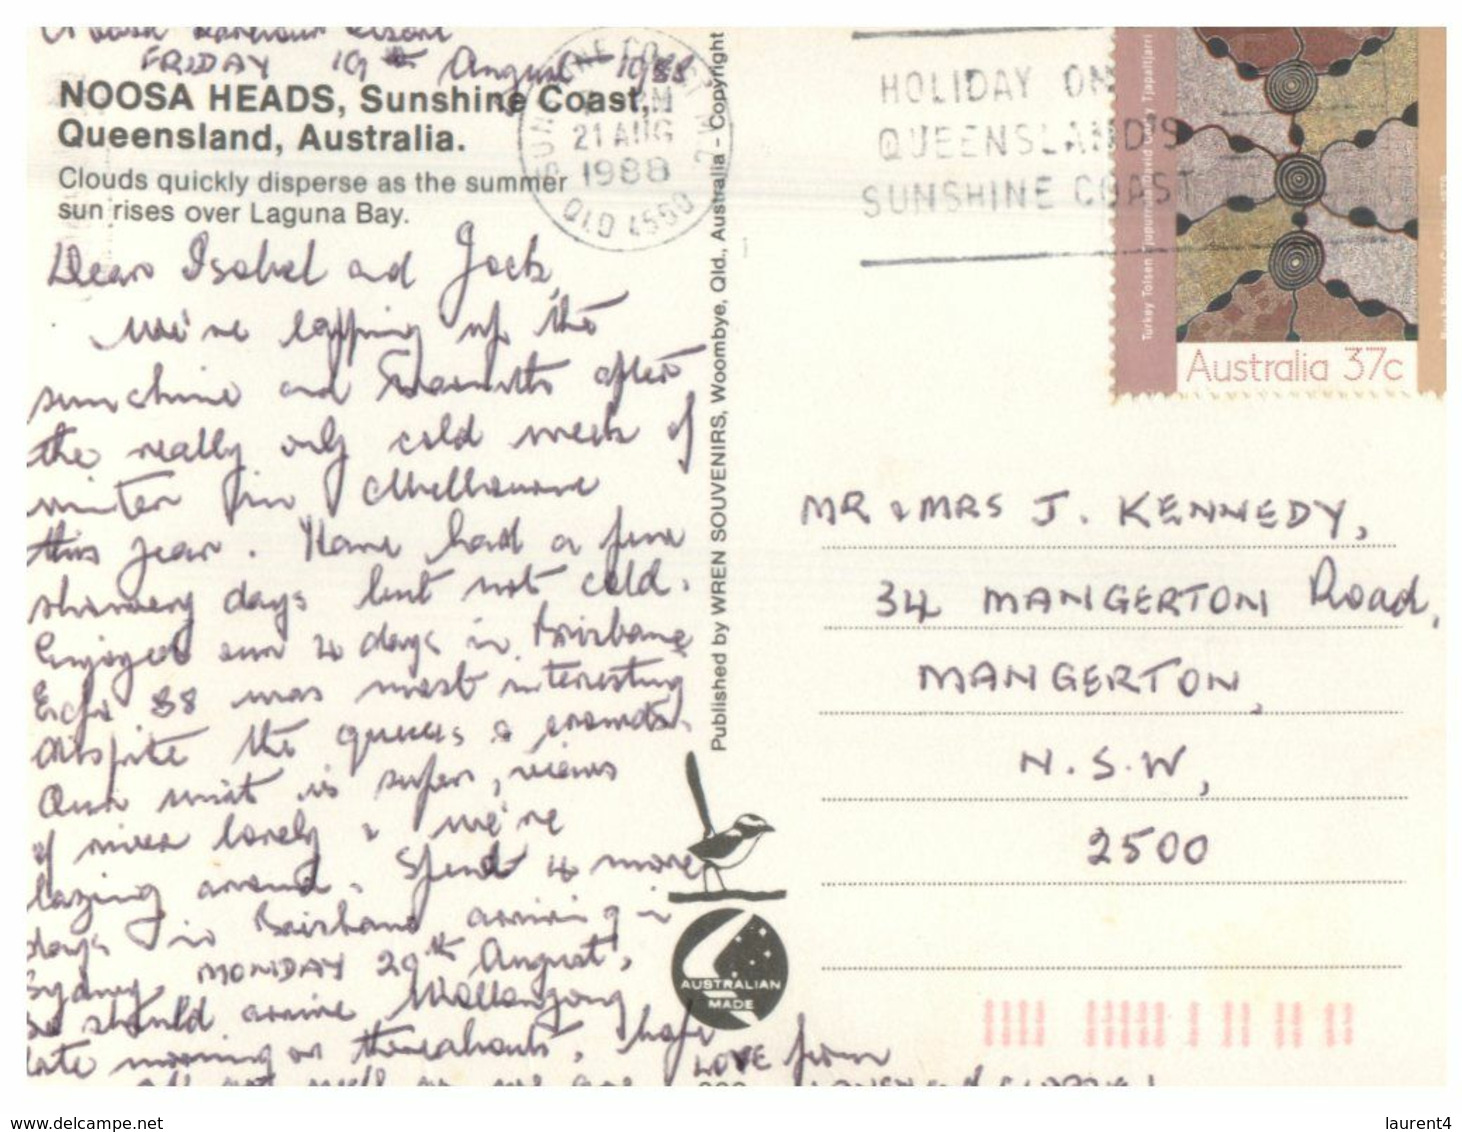 Noosa Harbour Resort
FRIDAY 19th August 1988
NOOSA HEADS, Sunshine Coast,
Queensland, Australia.
Clouds quickly disperse as the summer
sun rises over Laguna Bay.
Dear Isabel and Jack,
We're lapping up the
sunshine and warmth after
the really only cold week of
winter in Melbourne
this year. Have had a few
showery days but not cold.
Enjoyed our 4 days in Brisbane
Expo 88 was most interesting
despite the queues & crowds.
Our unit is super, views
of river lovely & we're
lazing around. Spend 4 more
days in Brisbane arriving in
Sydney MONDAY 29th August,
so should arrive Wollongong
late morning or thereabouts, hope
all are well as we are
LOVE from
Published by WREN SOUVENIRS, Woombye, Qld., Australia - Copyright
SUNSHINE COAST
PM
21 AUG
1988
QLD 4550
HOLIDAY ON
QUEENSLAND'S
SUNSHINE COAST
Australia 37c
MR & MRS J. KENNEDY,
34 MANGERTON Road,
MANGERTON,
N.S.W,
2500
AUSTRALIAN
MADE
www.delcampe.net
laurent4